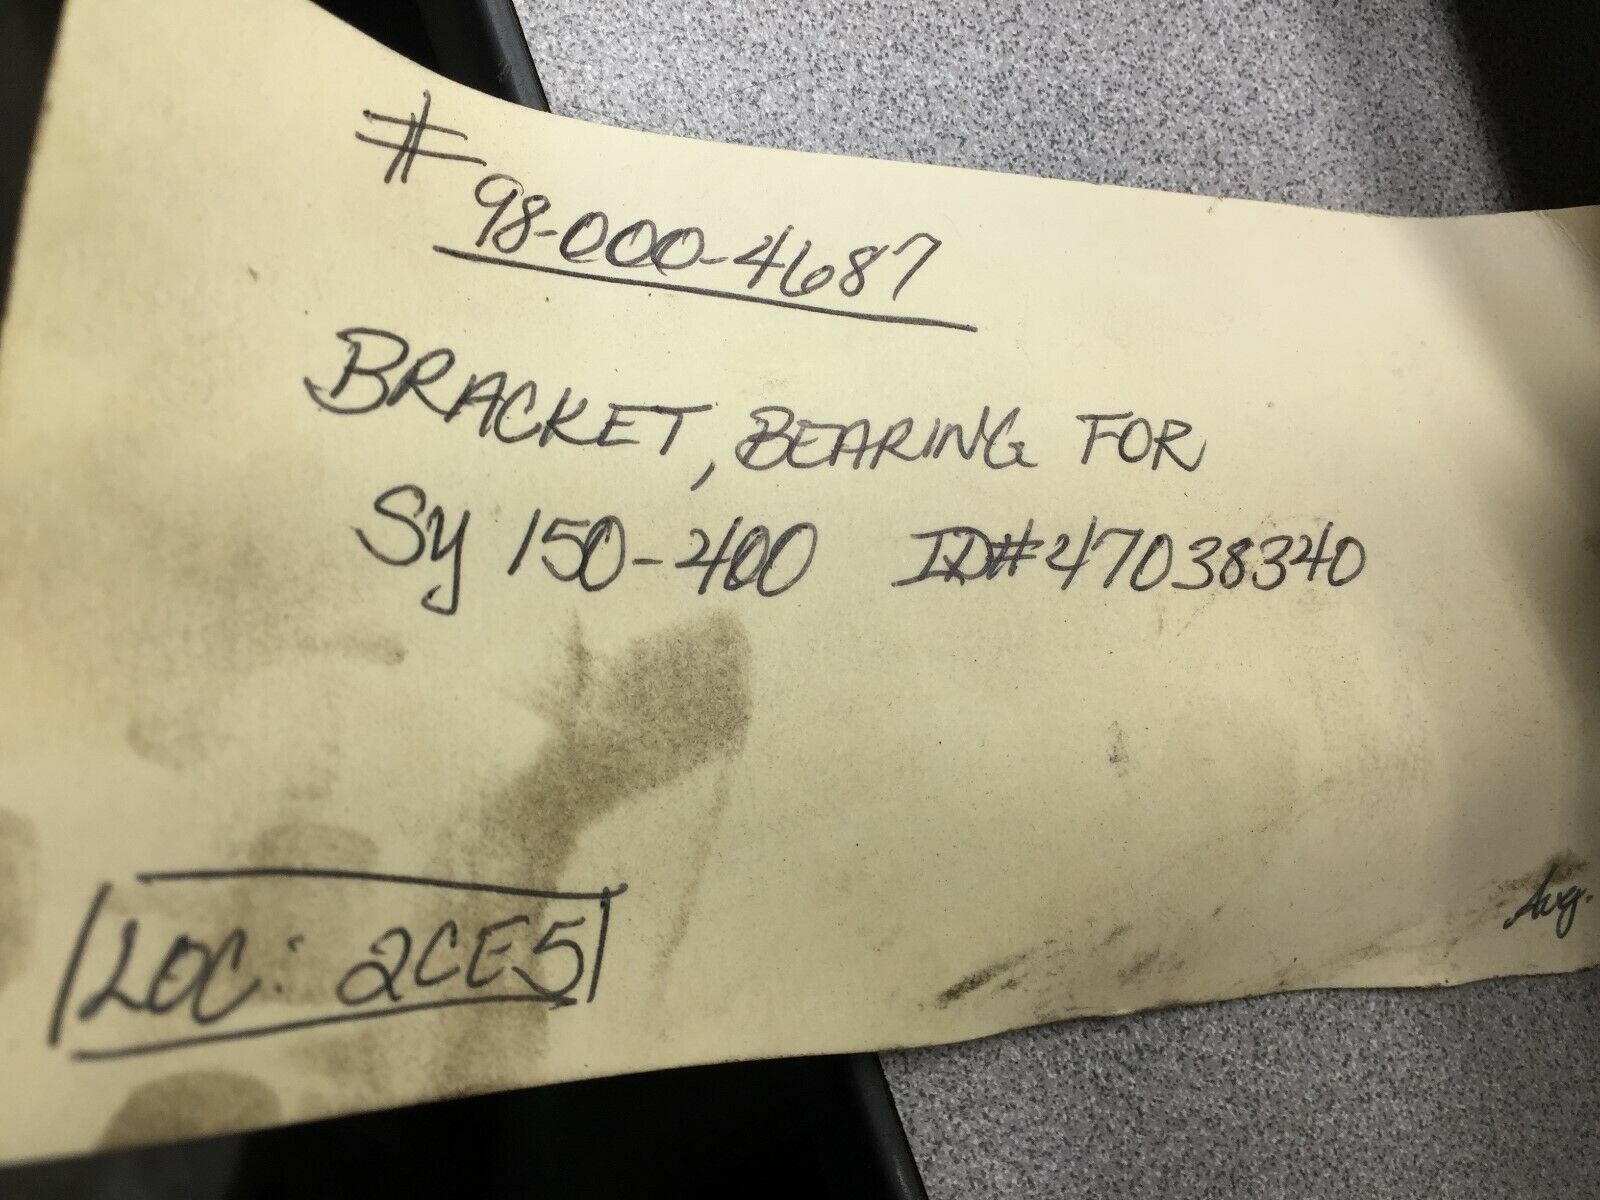 # 98-000-4687
BRACKET, BEARING FOR
Sy 150-400 ID# 47038340
LOC: 2CE5
Aug.